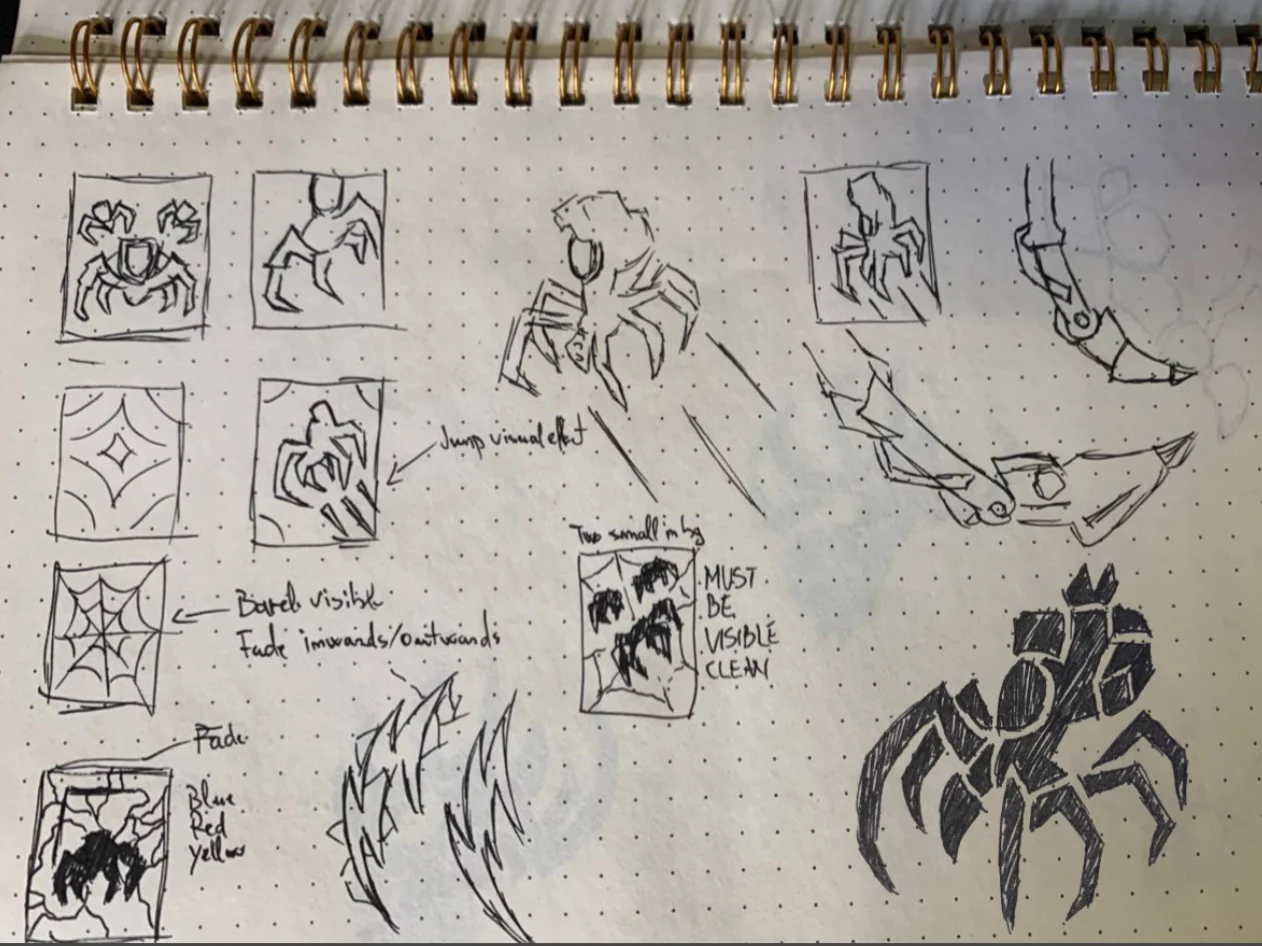 Jump visual effect
Two small in bg
MUST
BE
VISIBLE
CLEAN
Barely visible
Fade inwards/outwards
Fade
Blue
Red
Yellow